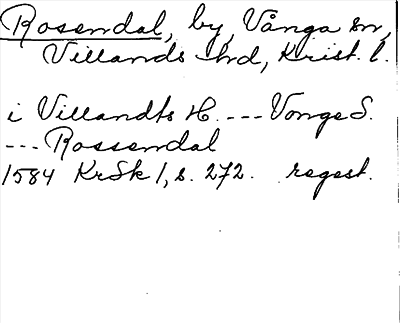 Rosendal, by, Vånga sn,
Villands hd, Krist. l.
i Villandts H. --- Vonge S.
--- Rossendal
1584 KrSk 1, s. 272. regest.